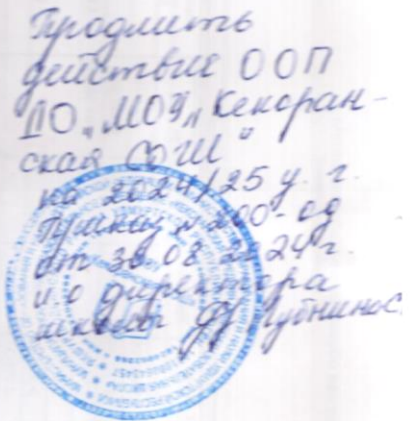 Продлить
действие ООП
ДО „МОУ „Кекоран-
ская СОШ"
на 2024/25 у. г.
Приказ № 200-од
от 30.08.2024 г.
и о директора
школы